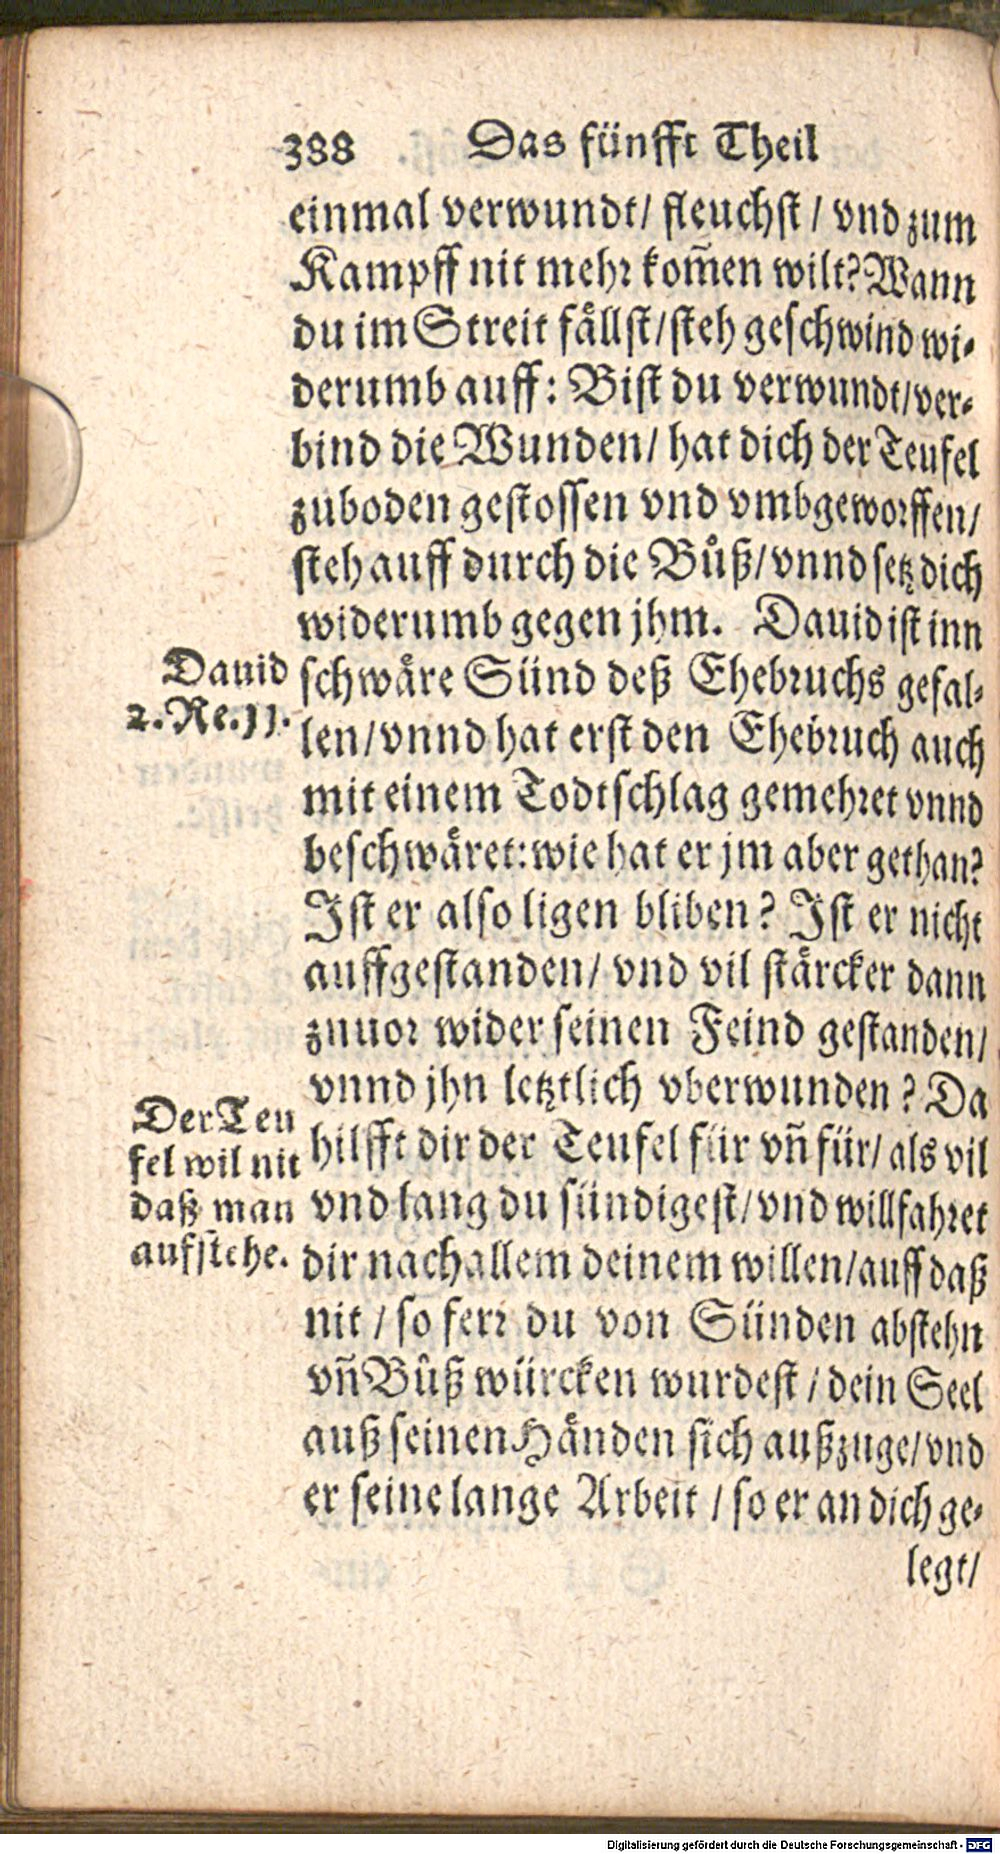 388 Das fünfft Theil
einmal verwundt/ fleuchst/ vnd zum
Kampff nit mehr kom̃en wilt? Wann
du im Streit fällst/steh geschwind wi-
derumb auff: Bist du verwundt/ver-
bind die Wunden/ hat dich der Teufel
zuboden gestossen vnd vmbgeworffen/
steh auff durch die Bůß/vnnd setz dich
widerumb gegen jhm. Dauid ist inn
Dauid
2. Re. 11.
schwäre Sünd deß Ehebruchs gefal-
len/vnnd hat erst den Ehebruch auch
mit einem Todtschlag gemehret vnnd
beschwäret: wie hat er jm aber gethan?
Ist er also ligen bliben? Ist er nicht
auffgestanden/ vnd vil stärcker dann
znuor wider seinen Feind gestanden/
vnnd jhn letztlich vberwunden? Da
Der Teu
fel wil nit
daß man
aufstehe.
hilfft dir der Teufel für vñ für/ als vil
vnd lang du sündigest/vnd willfahret
dir nach allem deinem willen/auff daß
nit / so ferr du von Sünden abstehn
vñ Bůß würcken wurdest / dein Seel
auß seinen Händen sich außzuge/vnd
er seine lange Arbeit / so er an dich ge-
legt/
Digitalisierung gefördert durch die Deutsche Forschungsgemeinschaft - DFG